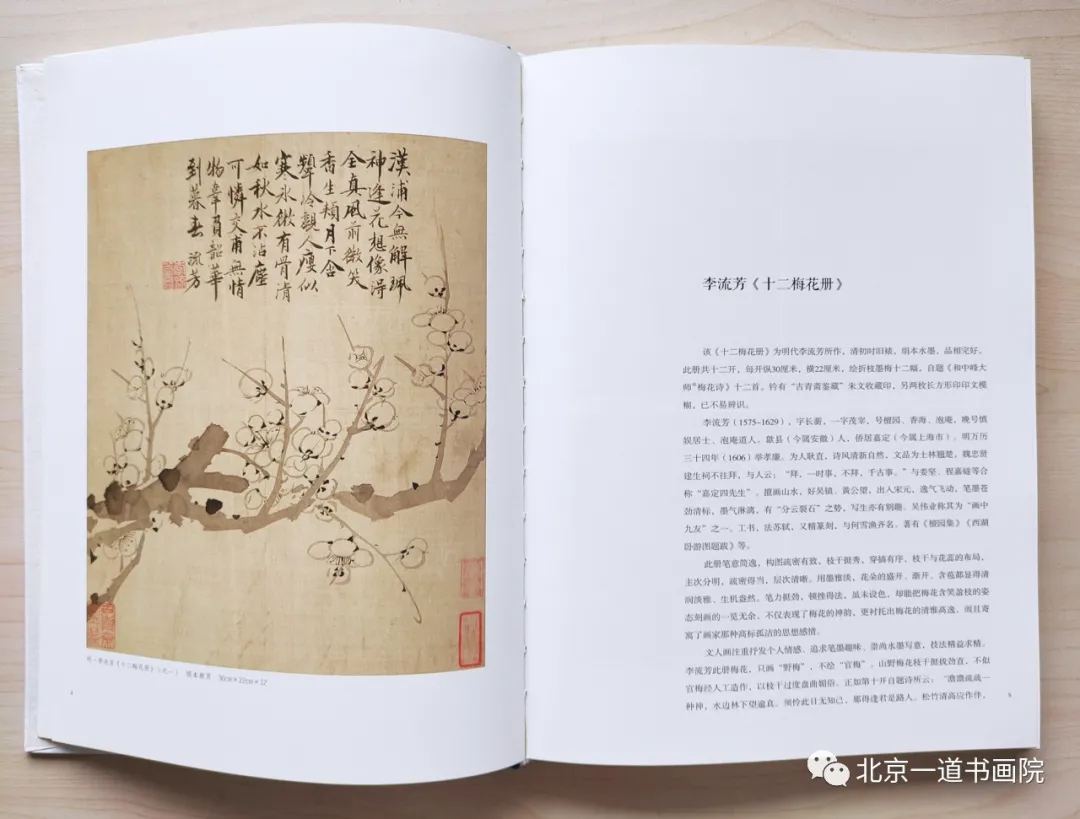 漢浦今無解珮
神逢花想像得
全真風前微笑
香生頰月下含
顰冷襯人瘦似
寒冰微有骨清
如秋水不沾塵
可憐交甫無情
物辜負韶華
到暮春 流芳
明·李流芳《十二梅花册》(之一) 绢本水墨 30cm×22cm×12
4
李流芳《十二梅花册》
该《十二梅花册》为明代李流芳所作，清初时旧裱，绢本水墨，品相完好。
此册共十二开，每开纵30厘米，横22厘米，绘折枝墨梅十二幅，自题《和中峰大
师梅花诗》十二首。钤有“古青斋鉴藏”朱文收藏印，另两枚长方形印印文模
糊，已不易辨识。
李流芳（1575-1629），字长蘅，一字茂宰，号檀园、香海、泡庵，晚号慎
娱居士、泡庵道人。歙县（今属安徽）人，侨居嘉定（今属上海市）。明万历
三十四年（1606）举孝廉。为人耿直，诗风清新自然，文品为士林翘楚。魏忠贤
建生祠不往拜，与人云：“拜，一时事，不拜，千古事。”与娄坚、程嘉燧等合
称“嘉定四先生”。擅画山水，好吴镇、黄公望，出入宋元，逸气飞动，笔墨苍
劲清标，墨气淋漓，有“分云裂石”之势，写生亦有别趣。吴伟业称其为“画中
九友”之一。工书，法苏轼，又精篆刻，与何雪渔齐名。著有《檀园集》《西湖
卧游图题跋》等。
此册笔意简逸，构图疏密有致，枝干挺秀，穿插有序，枝干与花蕊的布局，
主次分明，疏密得当，层次清晰。用墨雅淡，花朵的盛开、渐开、含苞都显得清
润淡雅、生机盎然。笔力挺劲，顿挫得法，虽未设色，却能把梅花含笑盈枝的姿
态刻画的一览无余，不仅表现了梅花的神韵，更衬托出梅花的清雅高逸，而且寄
寓了画家那种高标孤洁的思想感情。
文人画注重抒发个人情感、追求笔墨趣味、崇尚水墨写意，技法精益求精。
李流芳此册梅花，只画“野梅”，不绘“官梅”。山野梅花枝干挺拔劲直，不似
官梅经人工造作，以枝干过度盘曲媚俗。正如第十开自题诗所云：“澹澹疏疏一
种神，水边林下望逾真。须怜此日无知己，那得逢君是路人。松竹清高应作伴，
5
北京一道书画院